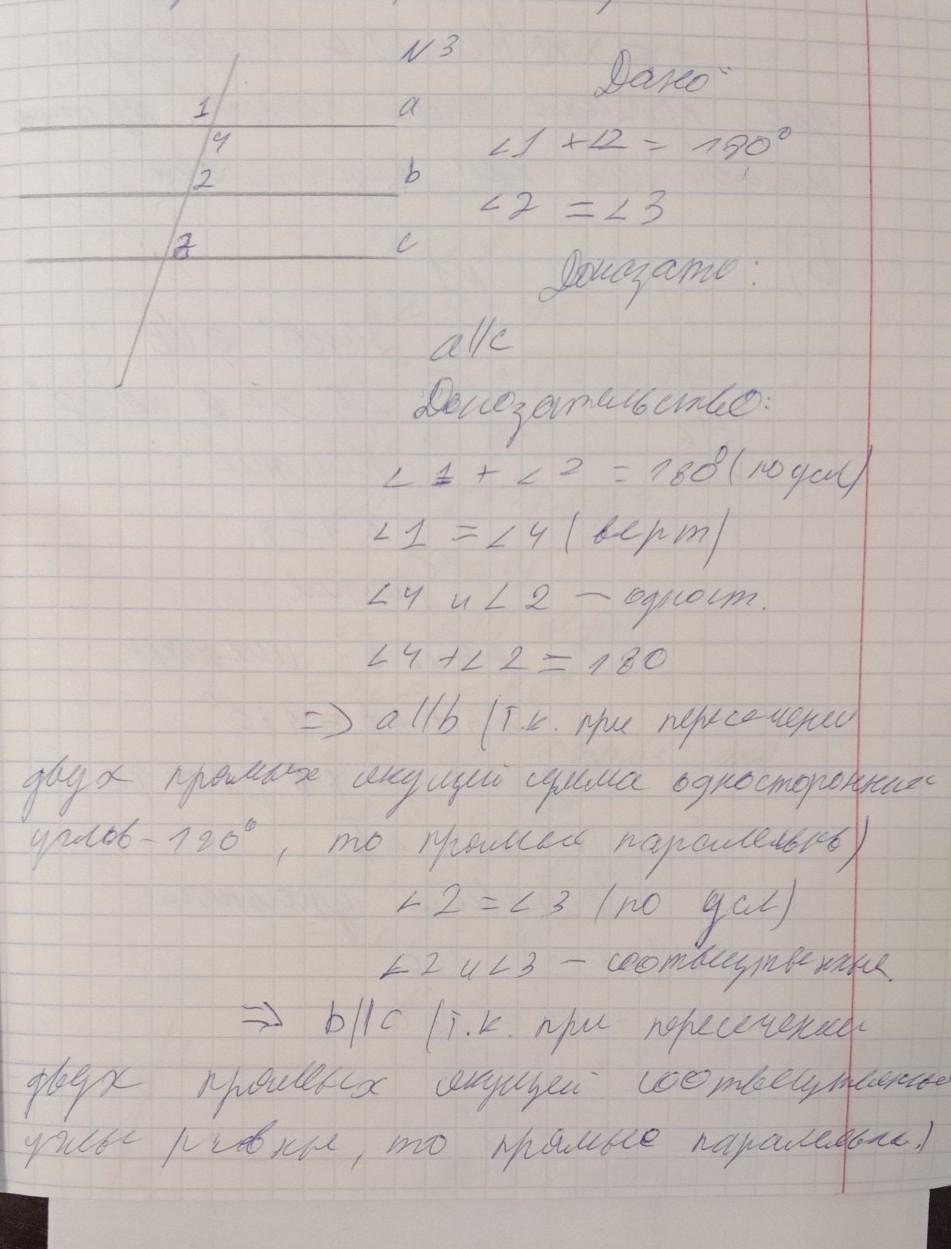 N3
Дано:
1 a
∠1 + ∠2 = 180°
4
2 b
∠2 = ∠3
3 c
Доказать:
a||c
Доказательство:
∠1 + ∠2 = 180° (по усл)
∠1 = ∠4 (верт)
∠4 и ∠2 – одност.
∠4 + ∠2 = 180
=> a||b (т.к. при пересечении
двух прямых секущей сумма односторонних
углов – 180°, то прямые паралельны)
∠2 = ∠3 (по усл)
∠2 и ∠3 – соответственные.
=> b||c (т.к. при пересечении
двух прямых секущей соответственные
углы равны, то прямые паралельны.)